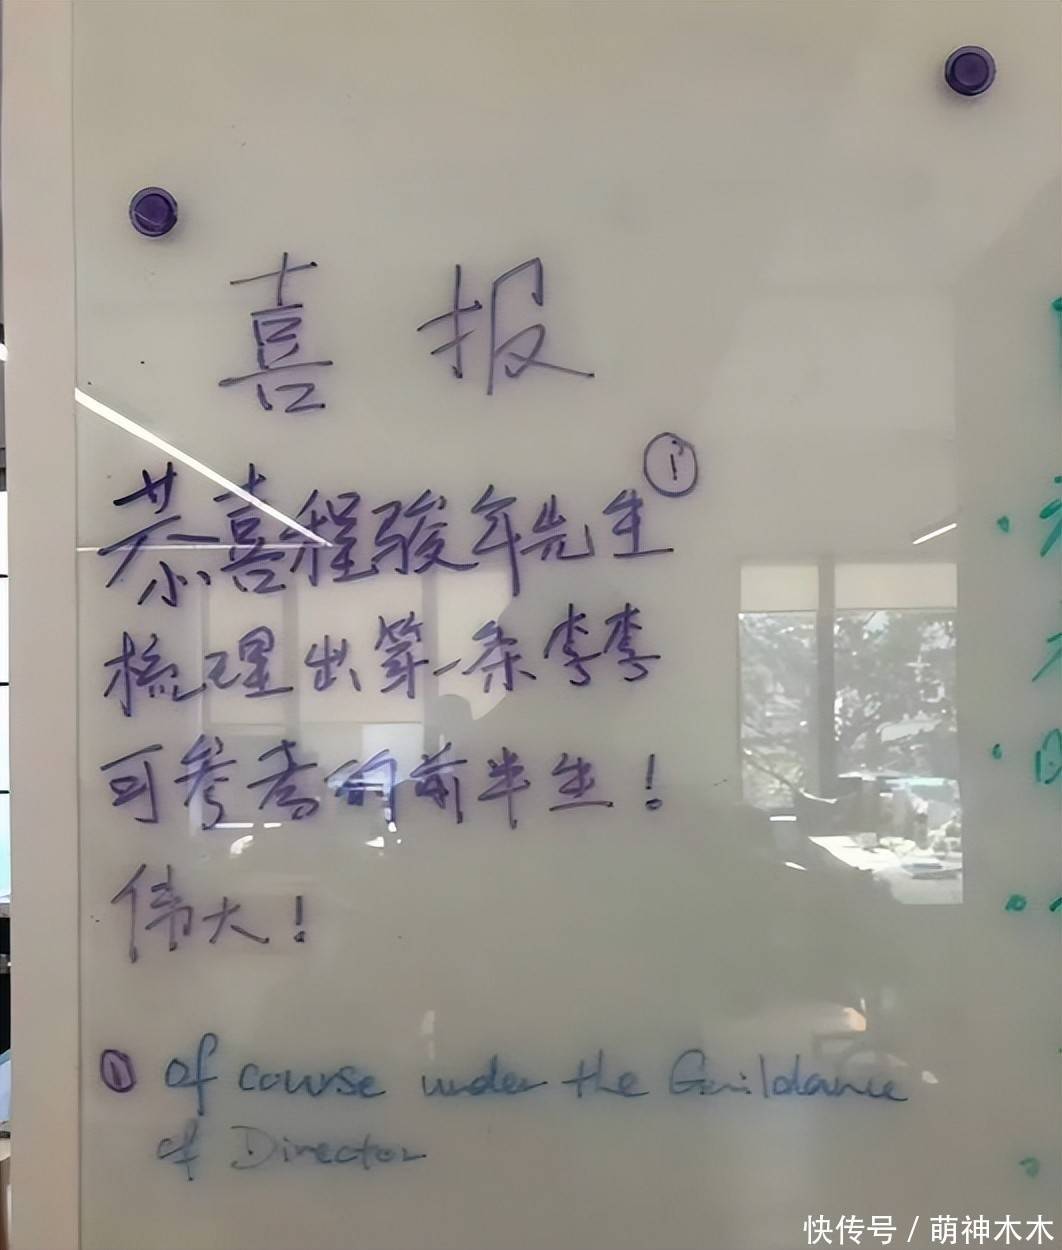 喜报
恭喜程骏年先生①
梳理出第一条李李
可参考的前半生!
伟大!
① of course under the Guildance
of Director
快传号 / 萌神木木